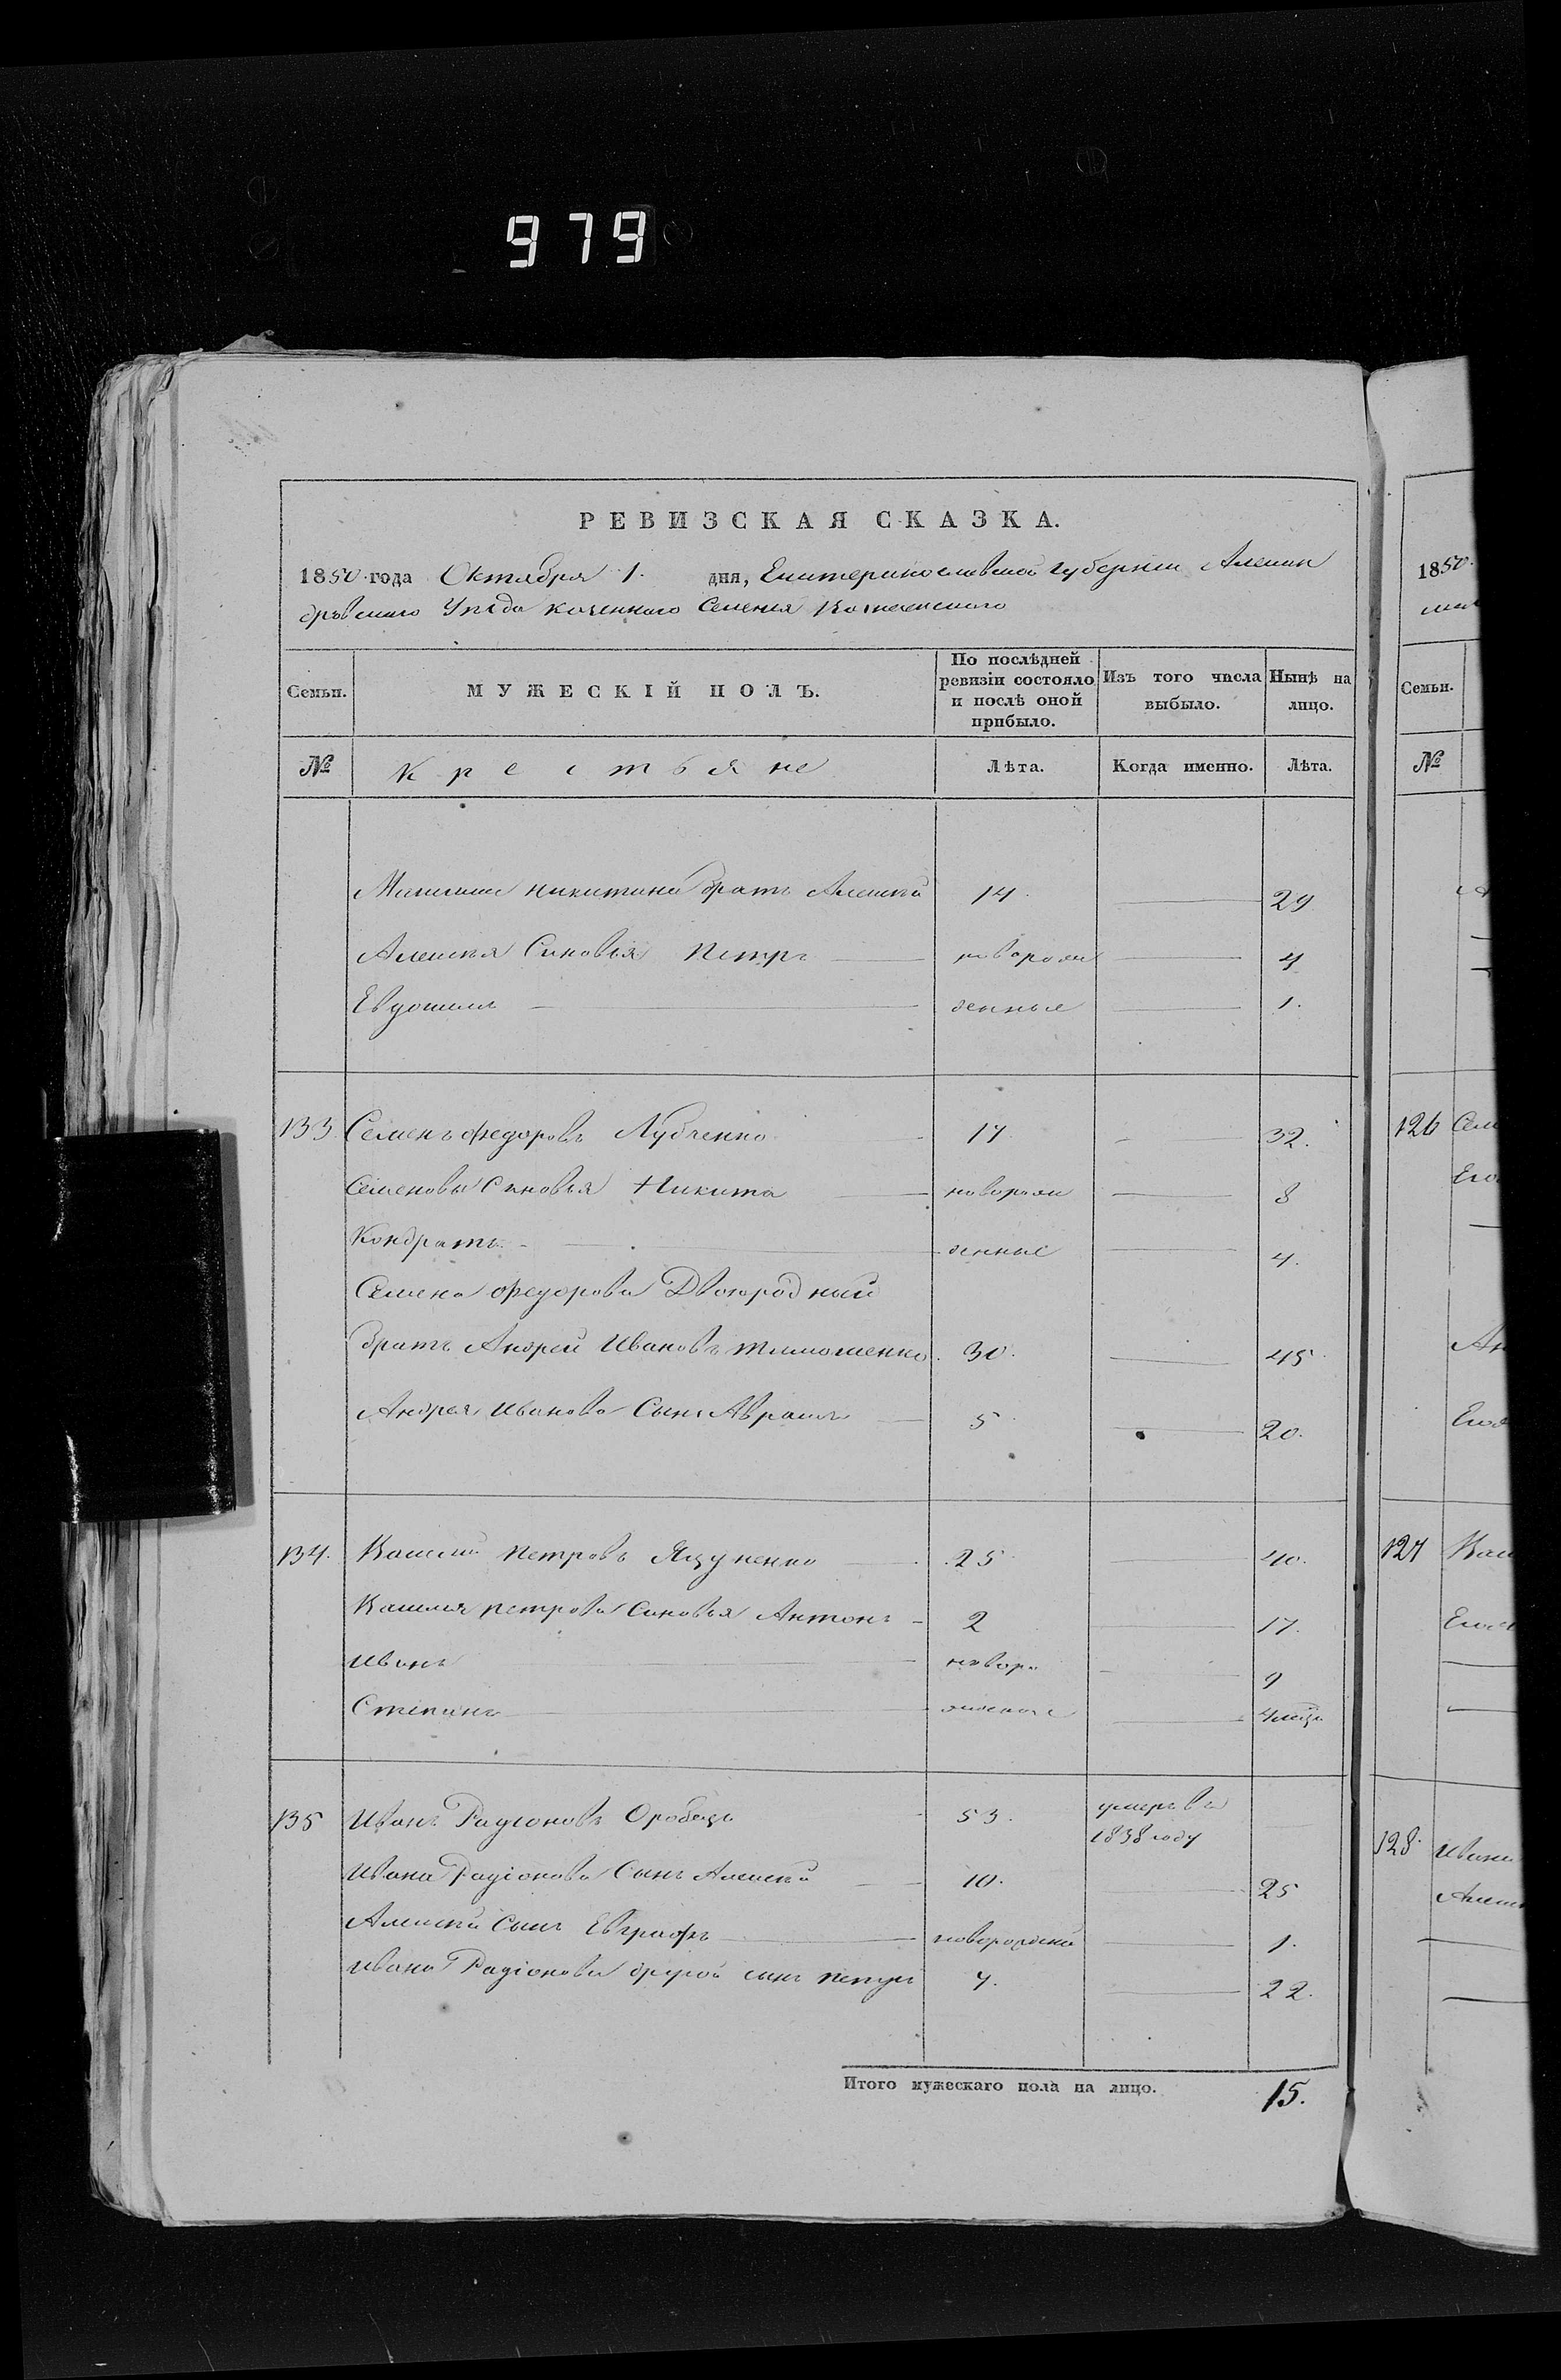 979
РЕВИЗСКАЯ СКАЗКА.
1850 года Октября 1. дня, Екатеринославской губернiи Алексан
дровскаго Уѣзда казеннаго Селенiя Вознесенскаго
Семьи.
МУЖЕСКІЙ ПОЛЪ.
По послѣдней ревизіи состояло и послѣ оной прибыло.
Изъ того числа выбыло.
Нынѣ на лицо.
№ Крестьяне Лѣта. Когда именно. Лѣта.
Никитина братъ Алексѣй 14. 29
Алексѣя Сыновья Петръ новорож 4
Евдокимъ денные 1.
133. Семенъ Федоровъ Лубченко 17 32.
Семеновы Сыновья Никита новорож 8
Кондратъ денные 4.
Семена Федорова Двоюродный
братъ Андрей Ивановъ Тимошенко 30. 45
Андрея Иванова Сынъ Аврамъ 5 20.
134. Василий Петровъ Яцуненко 25 40.
Василия Петрова Сыновья Антонъ 2 17.
Иванъ новоро 9
Степанъ жденные 4 мѣся
135 Иванъ Радіоновъ Оробецъ 53. умеръ въ
1838 году
Ивана Радіонова Сынъ Алексѣй 10. 25
Алексѣя Сынъ Евграфъ новорожденъ 1.
Ивана Радіонова другой сынъ 7. 22.
Итого мужескаго пола на лицо. 15.
1850.
Семьи.
№
126 Сем
127 Вас
128. Ивана